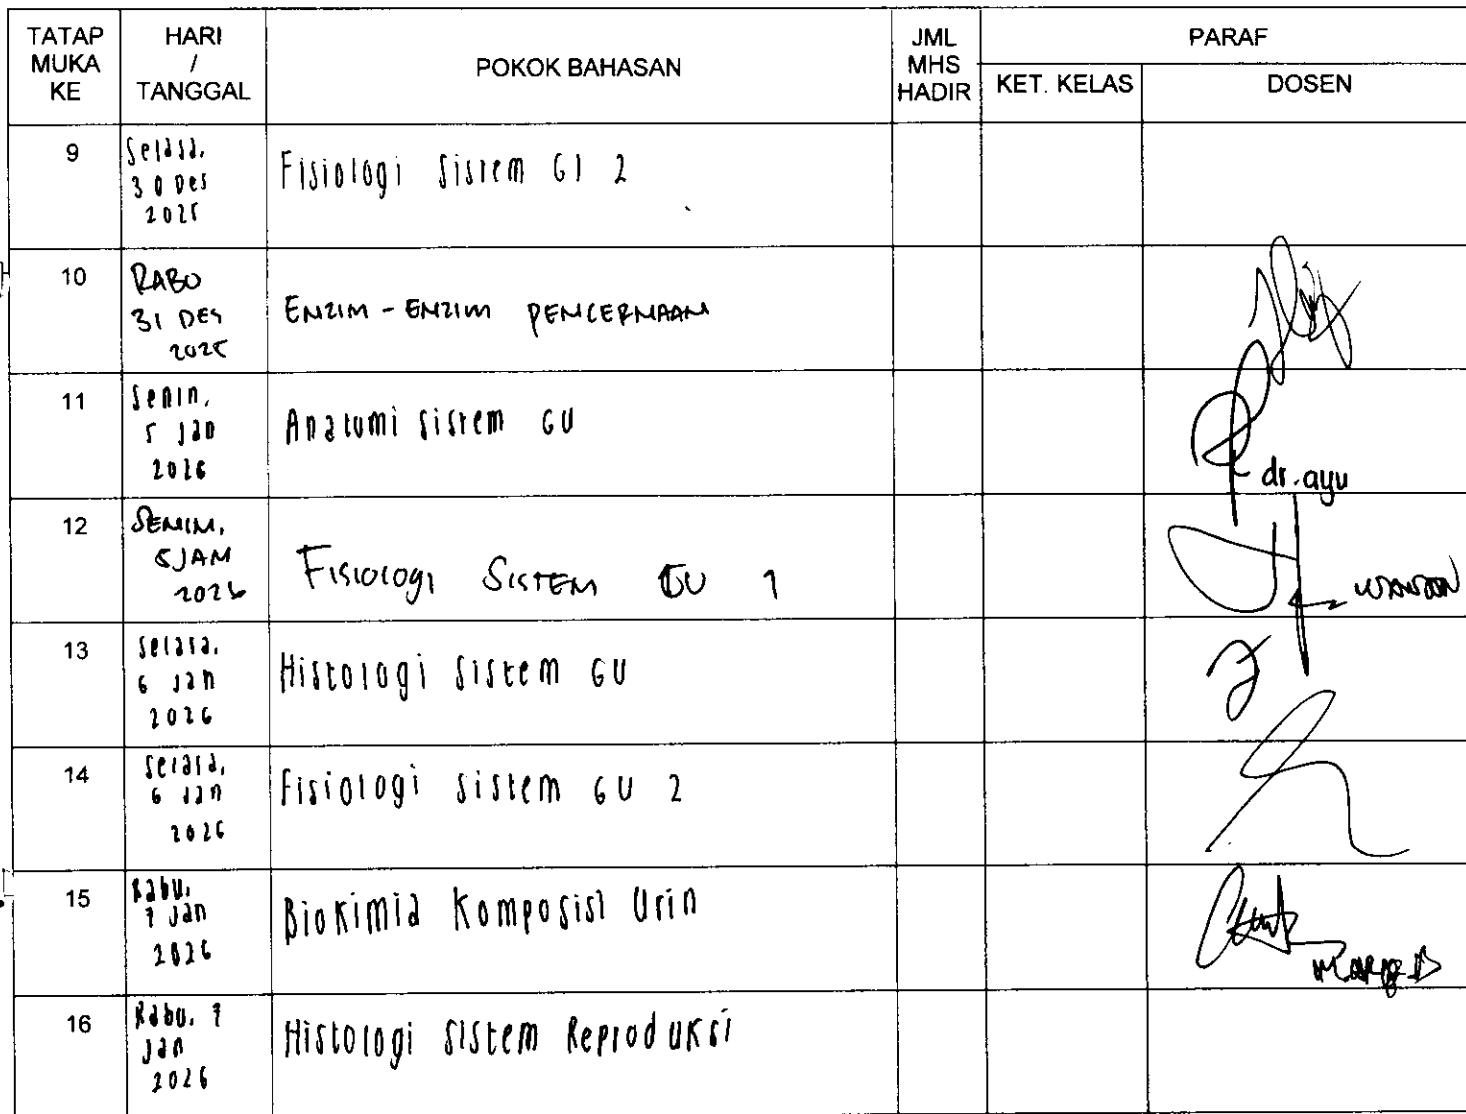 TATAP MUKA KE
HARI / TANGGAL
POKOK BAHASAN
JML MHS HADIR
PARAF
KET. KELAS
DOSEN
9
Selasa,
30 Des
2025
Fisiologi Sistem GI 2
10
RABO
31 DES
2025
ENZIM - ENZIM PENCERNAAN
11
Senin,
5 Jan
2026
Anatomi sistem GU
dr. ayu
12
SENIN,
5 JAN
2026
FISIOLOGI SISTEM GU 1
13
Selasa,
6 Jan
2026
Histologi Sistem GU
14
Selasa,
6 Jan
2026
Fisiologi sistem GU 2
15
Rabu,
7 Jan
2026
Biokimia Komposisi Urin
16
Rabu, 7
Jan
2026
Histologi Sistem Reproduksi